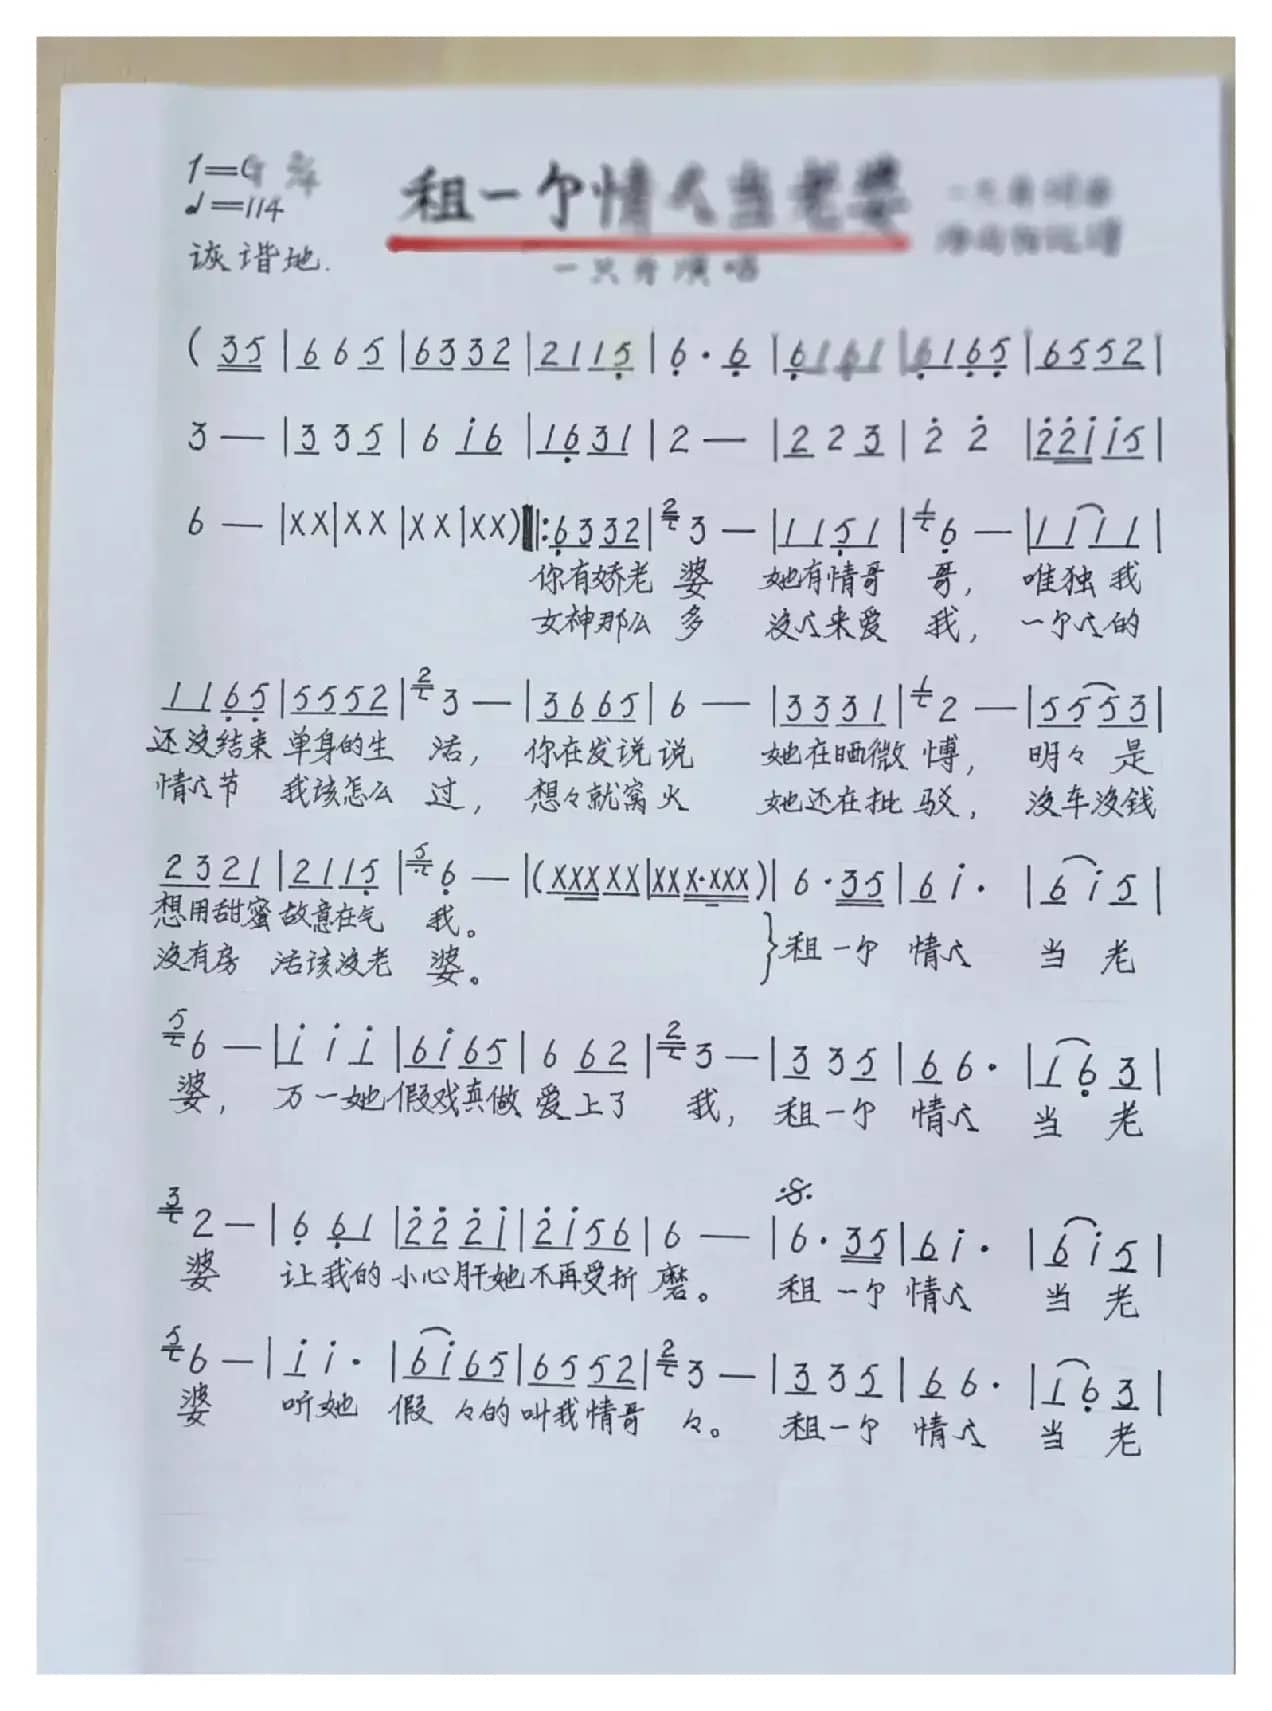 1=G 2/4
♩=114
诙谐地.
租一个情人当老婆
一只舟演唱
(35|665|6332|2115|6·6|6161|6165|6552|
3—|335|6i6|1631|2—|223|2̇ 2̇|2̇2̇ii5|
6—|XX|XX|XX|XX)‖:6332|2 3—|1151|1 6—|1111|
你有娇老 婆 她有情哥 哥, 唯独我
女神那么 多 没人来爱 我, 一个人的
1165|5552|2 3—|3665|6—|3331|1 2—|5553|
还没结束 单身的生 活, 你在发说说 她在晒微 博, 明々是
情人节 我该怎么 过, 想々就窝火 她还在批 驳, 没车没钱
2321|2115|5 6—|(XXXXX|XXX·XXX)|6·35|6i·|6i5|
想用甜蜜 故意在气 我。
没有房 活该没老 婆。 }租一个 情人 当 老
5 6—|iii|6i65|662|2 3—|335|66·|163|
婆, 万一她 假戏真做 爱上了 我, 租一个 情人 当 老
𝄋
3 2—|661|2̇2̇2̇i|2̇i56|6—|6·35|6i·|6i5|
婆 让我的 小心肝她 不再受折 磨。 租一个 情人 当 老
5 6—|ii·|6i65|6552|2 3—|335|66·|163|
婆 听她 假 々的 叫我情哥 々。 租一个 情人 当 老